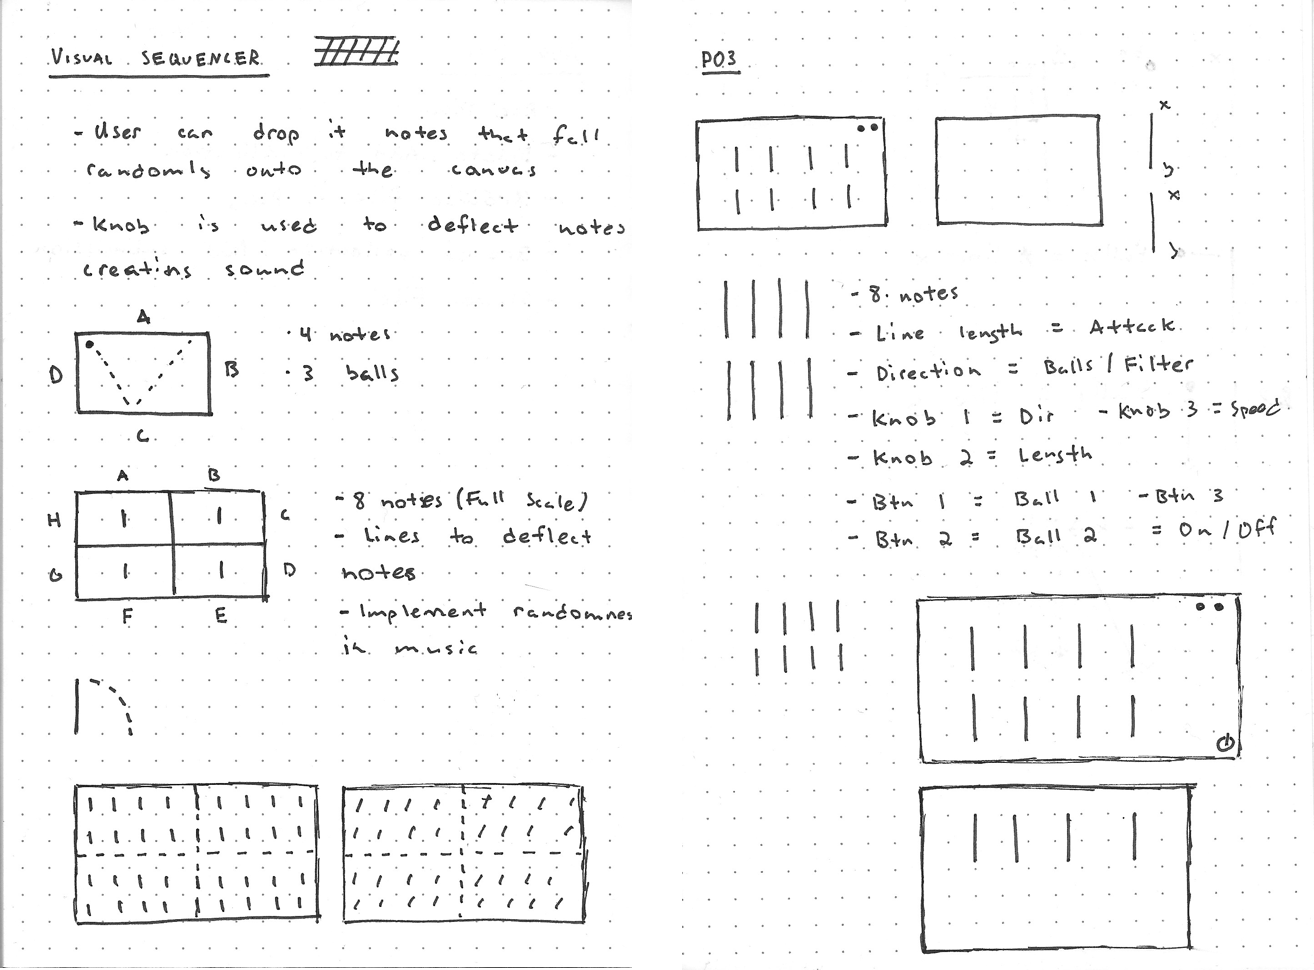 VISUAL SEQUENCER
- User can drop it notes that fall
randomly onto the canvas
- Knob is used to deflect notes
creating sound
A
D
B
C
· 4 notes
· 3 balls
A B
H
C
G
D
F E
- 8 notes (Full Scale)
- Lines to deflect
notes
- Implement randomnes
in music
PO3
x
y
x
y
- 8 notes
- Line length = Attack
- Direction = Balls / Filter
- Knob 1 = Dir - Knob 3 = Speed
- Knob 2 = Length
- Btn 1 = Ball 1 - Btn 3
- Btn 2 = Ball 2 = On / Off